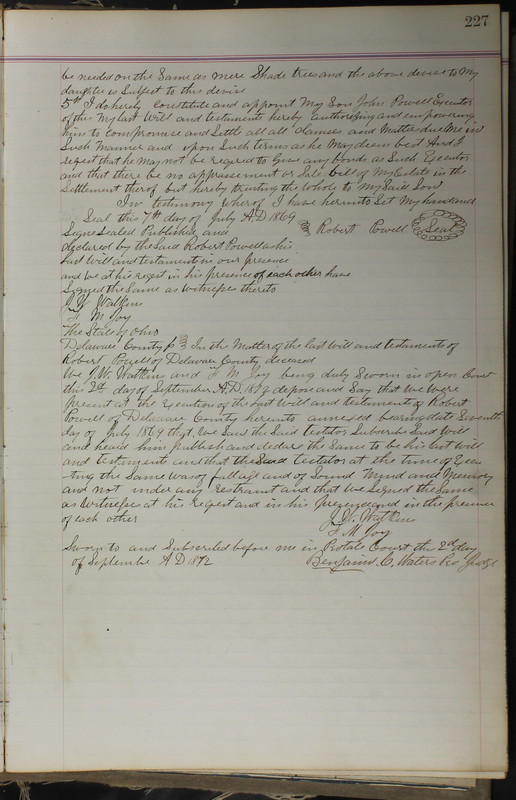 227
be needed on the Same as mere Shade trees and the above devise to My
daughter is Subject to this devise
5th I do hereby Constitute and appoint My Son John Powell Executor
of this My last Will and testament hereby authorizing and empowering
him to compromise and Settle all all Claimes and Matters due Me in
Such Manner and upon Such terms as he May deem best And I
reqest that he may not be reqered to Give any bonds as Such Executor
and that there be no appraisement or Sale bill of My Estate in the
settlement therof but hereby trusting the whole to My Said Son
In testimony wherof I have hereinto Set My hand and
Seal this 7th day of July A.D 1869
Robert Powell Seal
Signe Sealed Published and
declared by the Said Robert Powell as his
last will and testament in our presence
and we at his reqest in his presence of each other have
Signed the Same as witnesses thereto
J. W. Watkins
F. M. Joy
The State of Ohio
Delaware County SS In the Matter of the last will and testament of
Robert Powell of Delaware County deceased
We J. W. Watkins and F. M. Joy being duly Sworn in open Court
this 2d day of September A.D. 1872 depose and Say that we were
present at the Execution of the last Will and testament of Robert
Powell of Delaware County hereinto annexed bearing date Seventh
day of July 1869 that We Saw the Said testator Subscribe Said Will
and heard him publish and declare the Same to be his last will
and testament and that the Said testator at the time of Execu
ting the Same was of full age and of Sound Mind and Memory
and not under any restraint and that we Signed the Same
as witnesses at his reqest and in his presence and in the presence
of each other
J. W. Watkins
F. M. Joy
Sworn to and Subscribed before me in Probate Court this 2d day
of September A.D 1872
Benjamin C. Waters Pro Judge